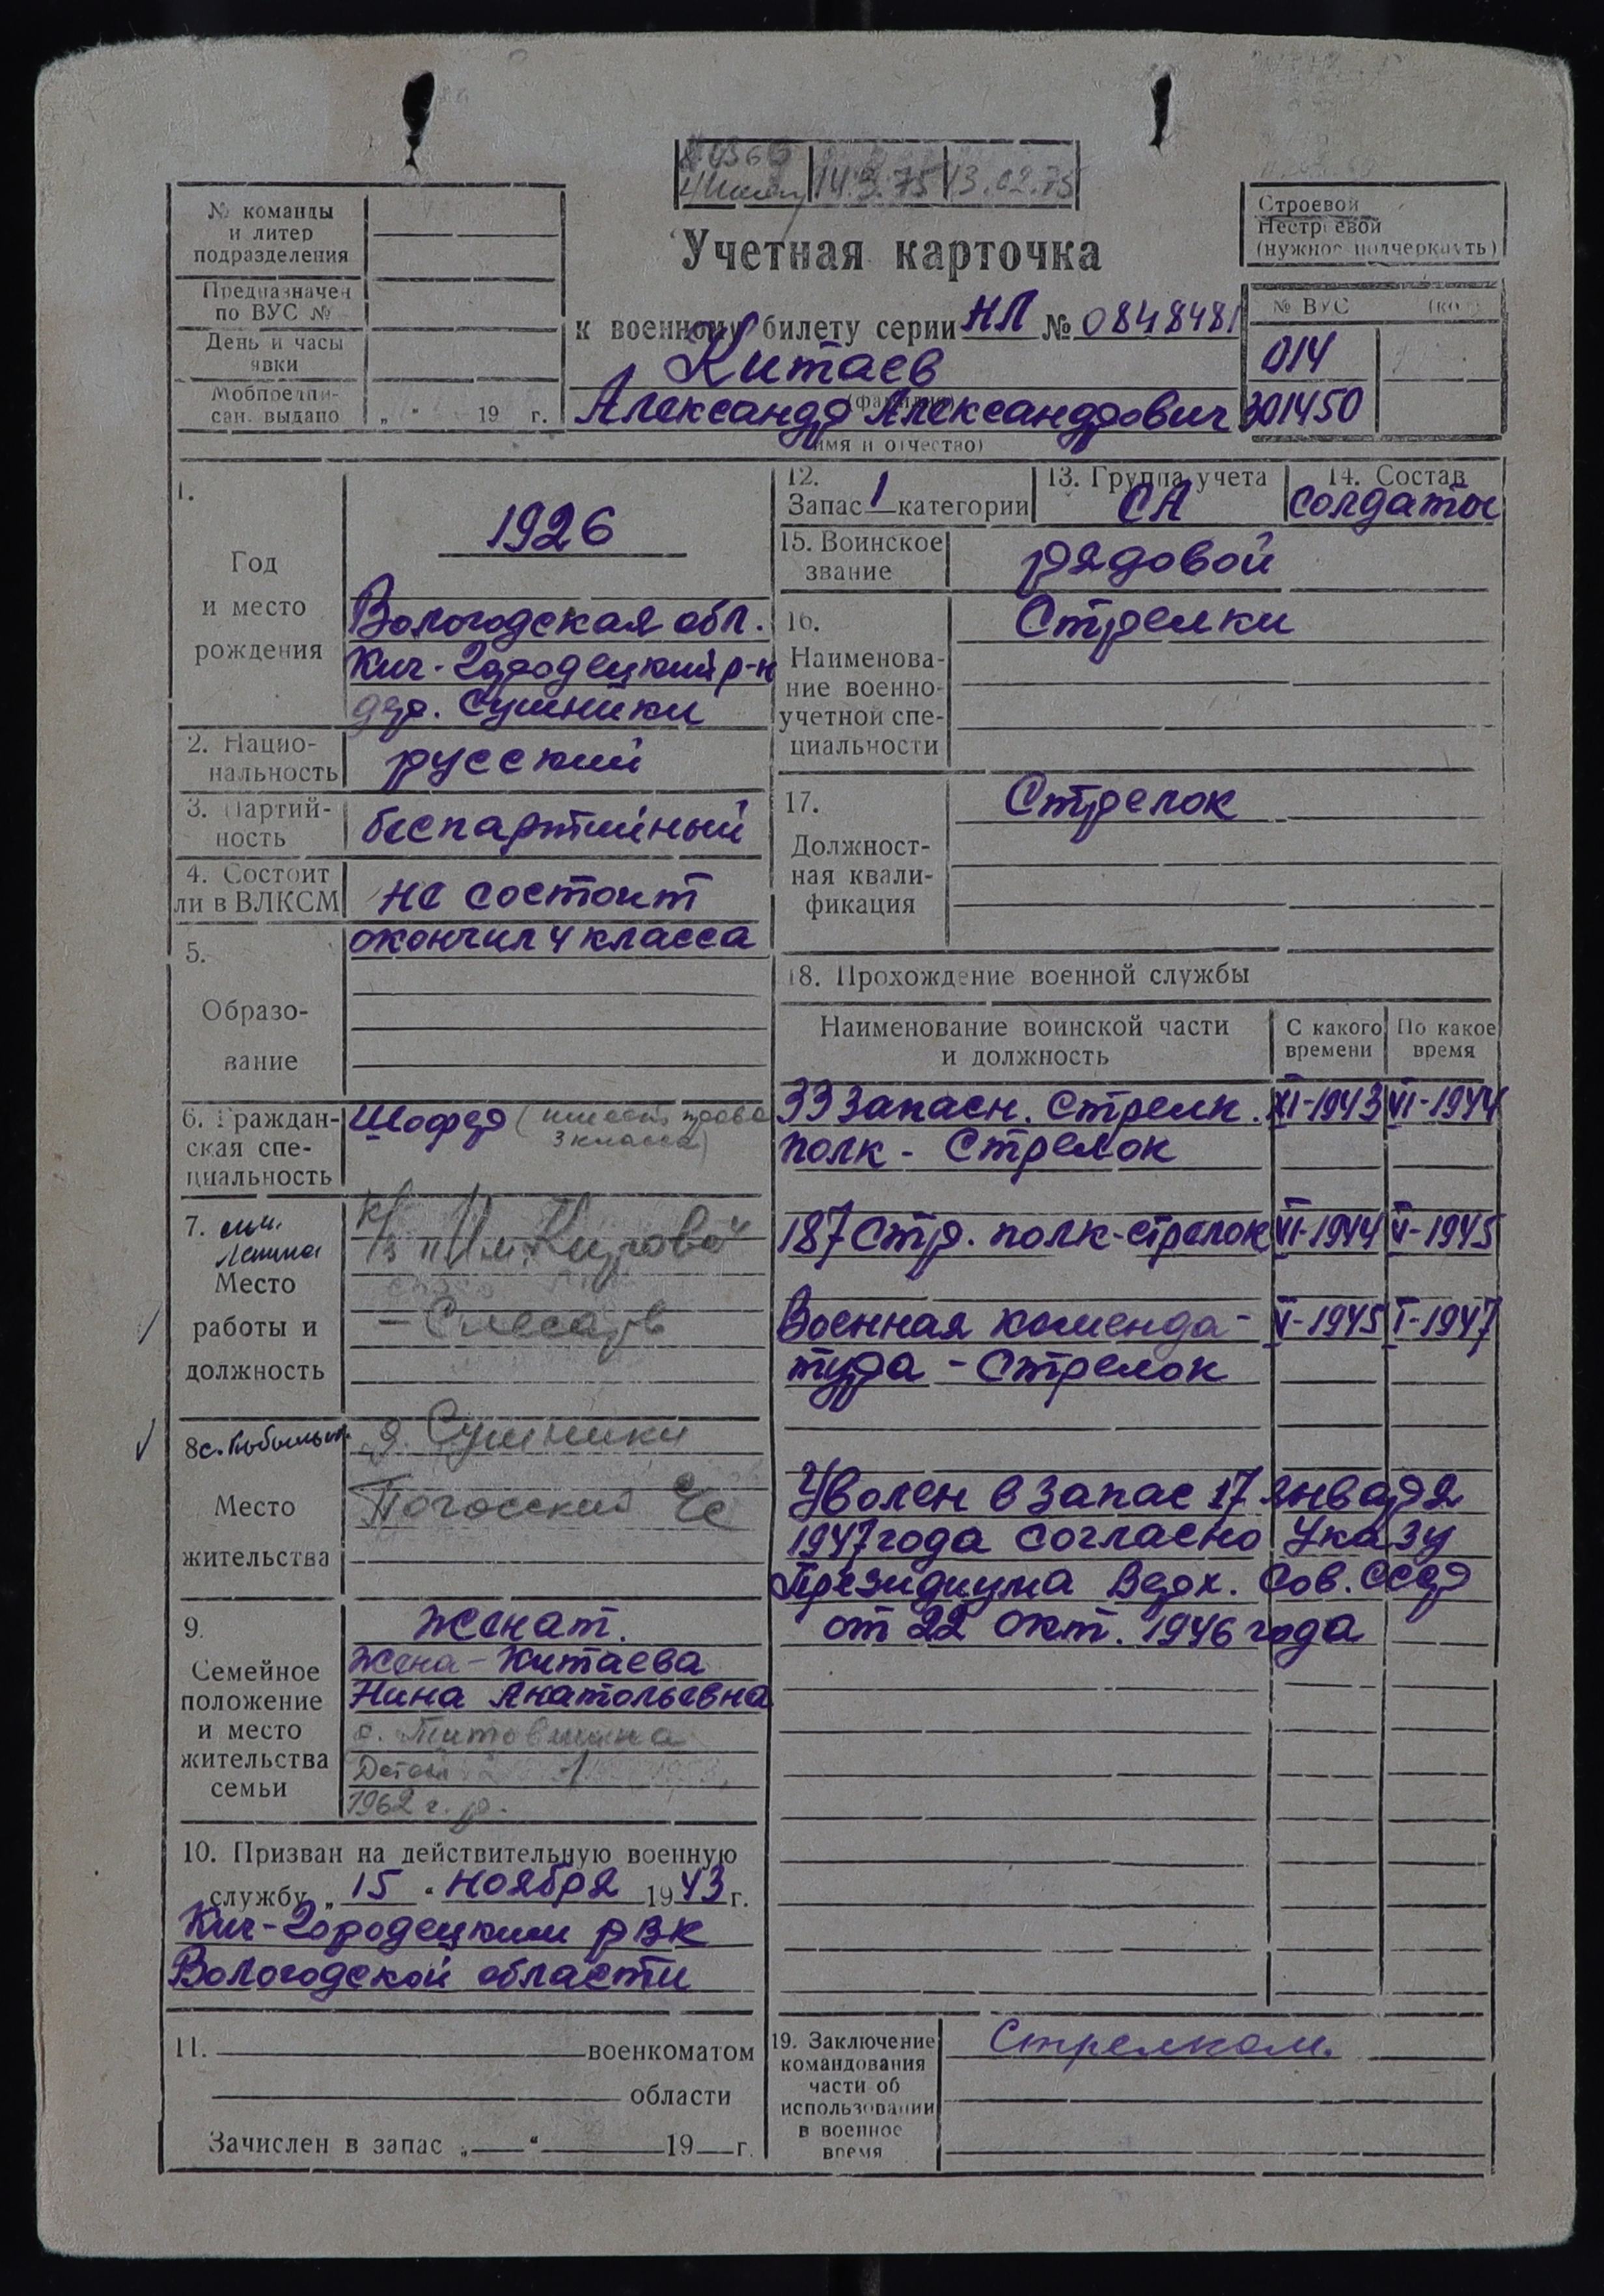 14.3.75
13.02.75
№ команды
и литер
подразделения
Предназначен
по ВУС №
День и часы
явки
Мобпредпи-
сан. выдано „ “ 19 г.
Учетная карточка
к военному билету серии НЛ № 0848481
Китаев
(фамилия)
Александр Александрович
(имя и отчество)
Строевой
Нестроевой
(нужное подчеркнуть)
№ ВУС
014
301450
1.
Год
и место
рождения
1926
Вологодская обл.
Кич-Городецкий р-н
дер. Сушники
2. Нацио-
нальность
русский
3. Партий-
ность
беспартийный
4. Состоит
ли в ВЛКСМ
не состоит
5.
Образо-
вание
окончил 4 класса
6. Граждан-
ская спе-
циальность
Шофер (имеет права
3 класса)
7. им.
Ленина
Место
работы и
должность
к/з "Им. Кирова"
- Слесарь
8 с.
Место
жительства
д. Сушники
Погосский с/с
9.
Семейное
положение
и место
жительства
семьи
женат.
Жена - Китаева
Нина Анатольевна
с. Титовщина
Детей 1
1962 г. р.
10. Призван на действительную военную
службу „ 15 “ ноября 1943 г.
Кич-Городецким РВК
Вологодской области
11. военкоматом
области
Зачислен в запас „ “ 19 г.
12.
Запас 1 категории
13. Группа учета
СА
14. Состав
солдаты
15. Воинское
звание
рядовой
16.
Наименова-
ние военно-
учетной спе-
циальности
Стрелки
17.
Должност-
ная квали-
фикация
Стрелок
18. Прохождение военной службы
Наименование воинской части
и должность
С какого
времени
По какое
время
33 запасн. стрелк. XI-1943 VI-1944
полк - стрелок
187 стр. полк-стрелок VI-1944 V-1945
Военная коменда- V-1945 I-1947
тура - стрелок
Уволен в запас 17 января
1947 года согласно Указу
Президиума Верх. Сов. СССР
от 22 окт. 1946 года
19. Заключение
командования
части об
использовании
в военное
время
Стрелком.